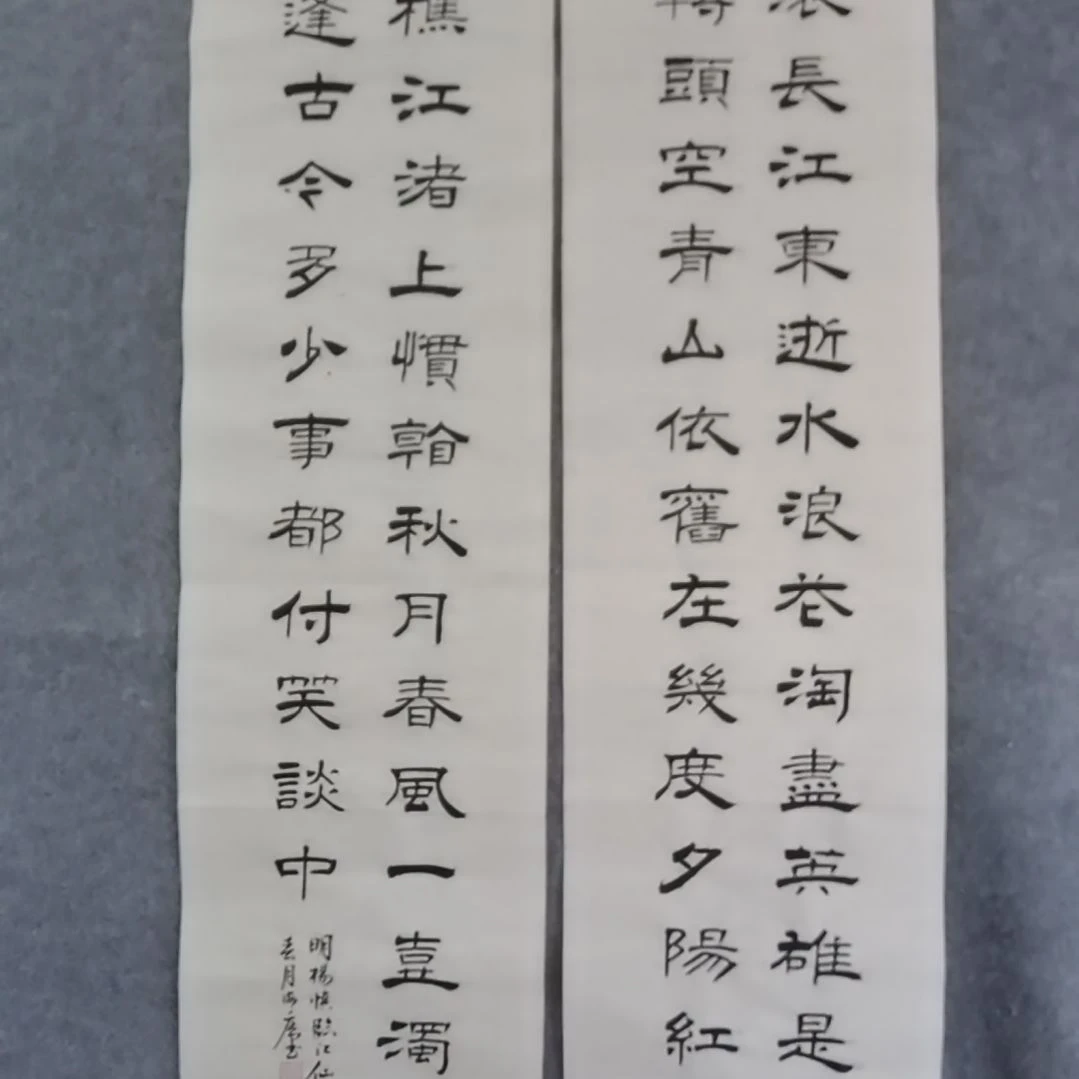 滾長江東逝水浪花淘盡英雄是
轉頭空青山依舊在幾度夕陽紅
樵江渚上慣看秋月春風一壺濁
逢古今多少事都付笑談中
明楊慎臨江仙
春月